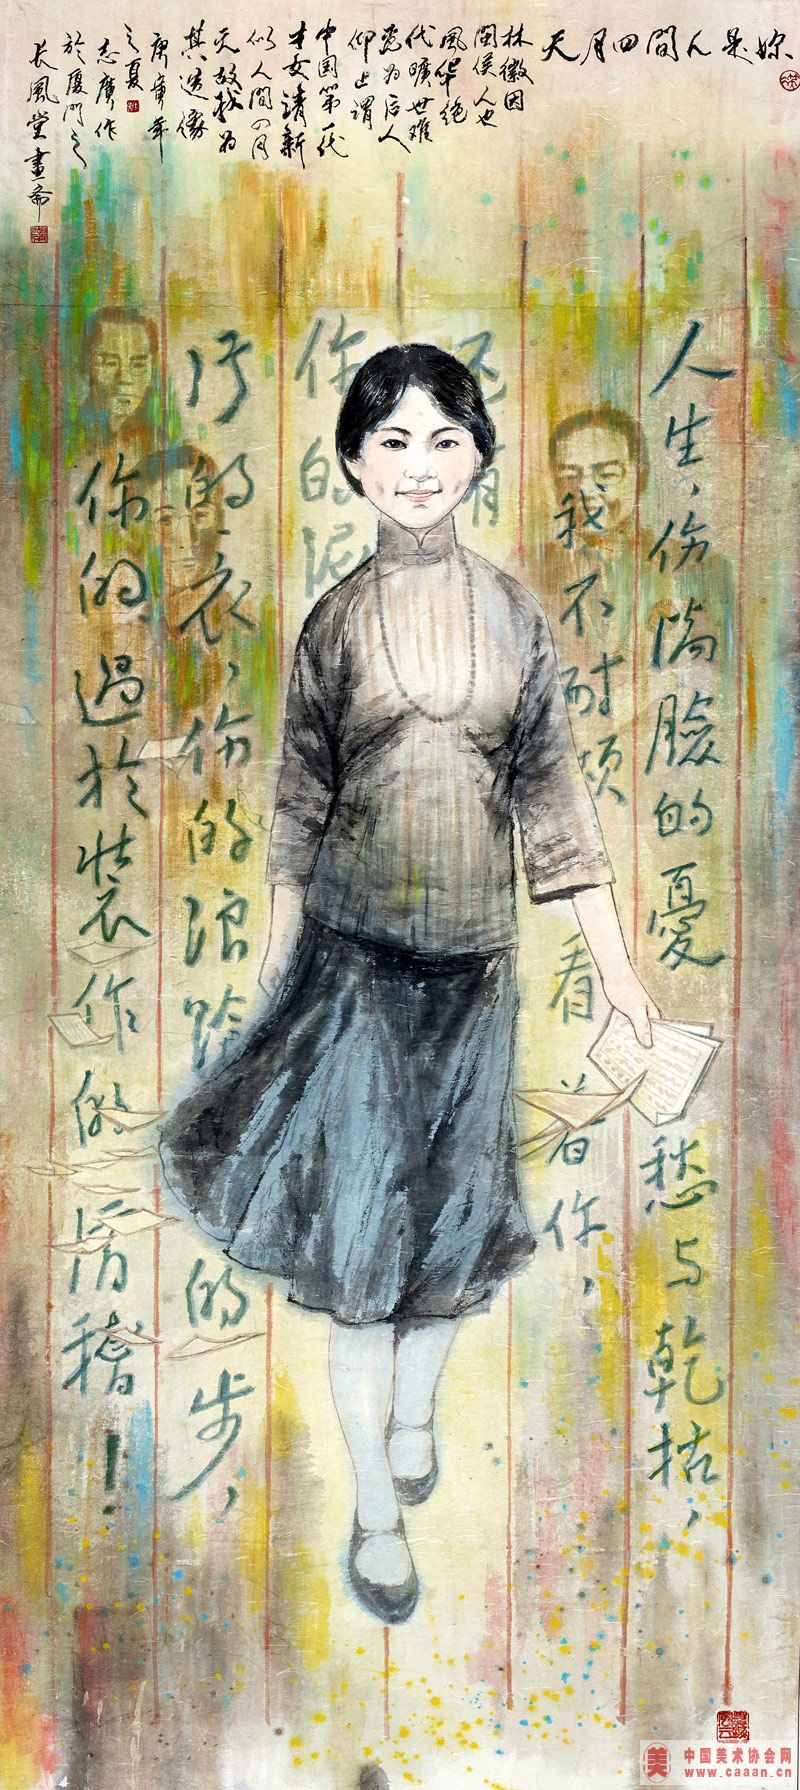 妳是人間四月天
林徽因
閩侯人也
風华绝
代曠世难
觅为后人
仰止谓
中国第一代
才女清新
似人間四月
天故为
其造像
庚寅年
之夏
志廣作
於厦門之
長風堂畫斋
人生，你滿臉的憂愁与乾枯，
我不耐烦看着你，
还有
你的泥
污的衣，你的浪跄的步，
你的過於装作的滑稽！
美 中国美术协会网
www.caaan.cn